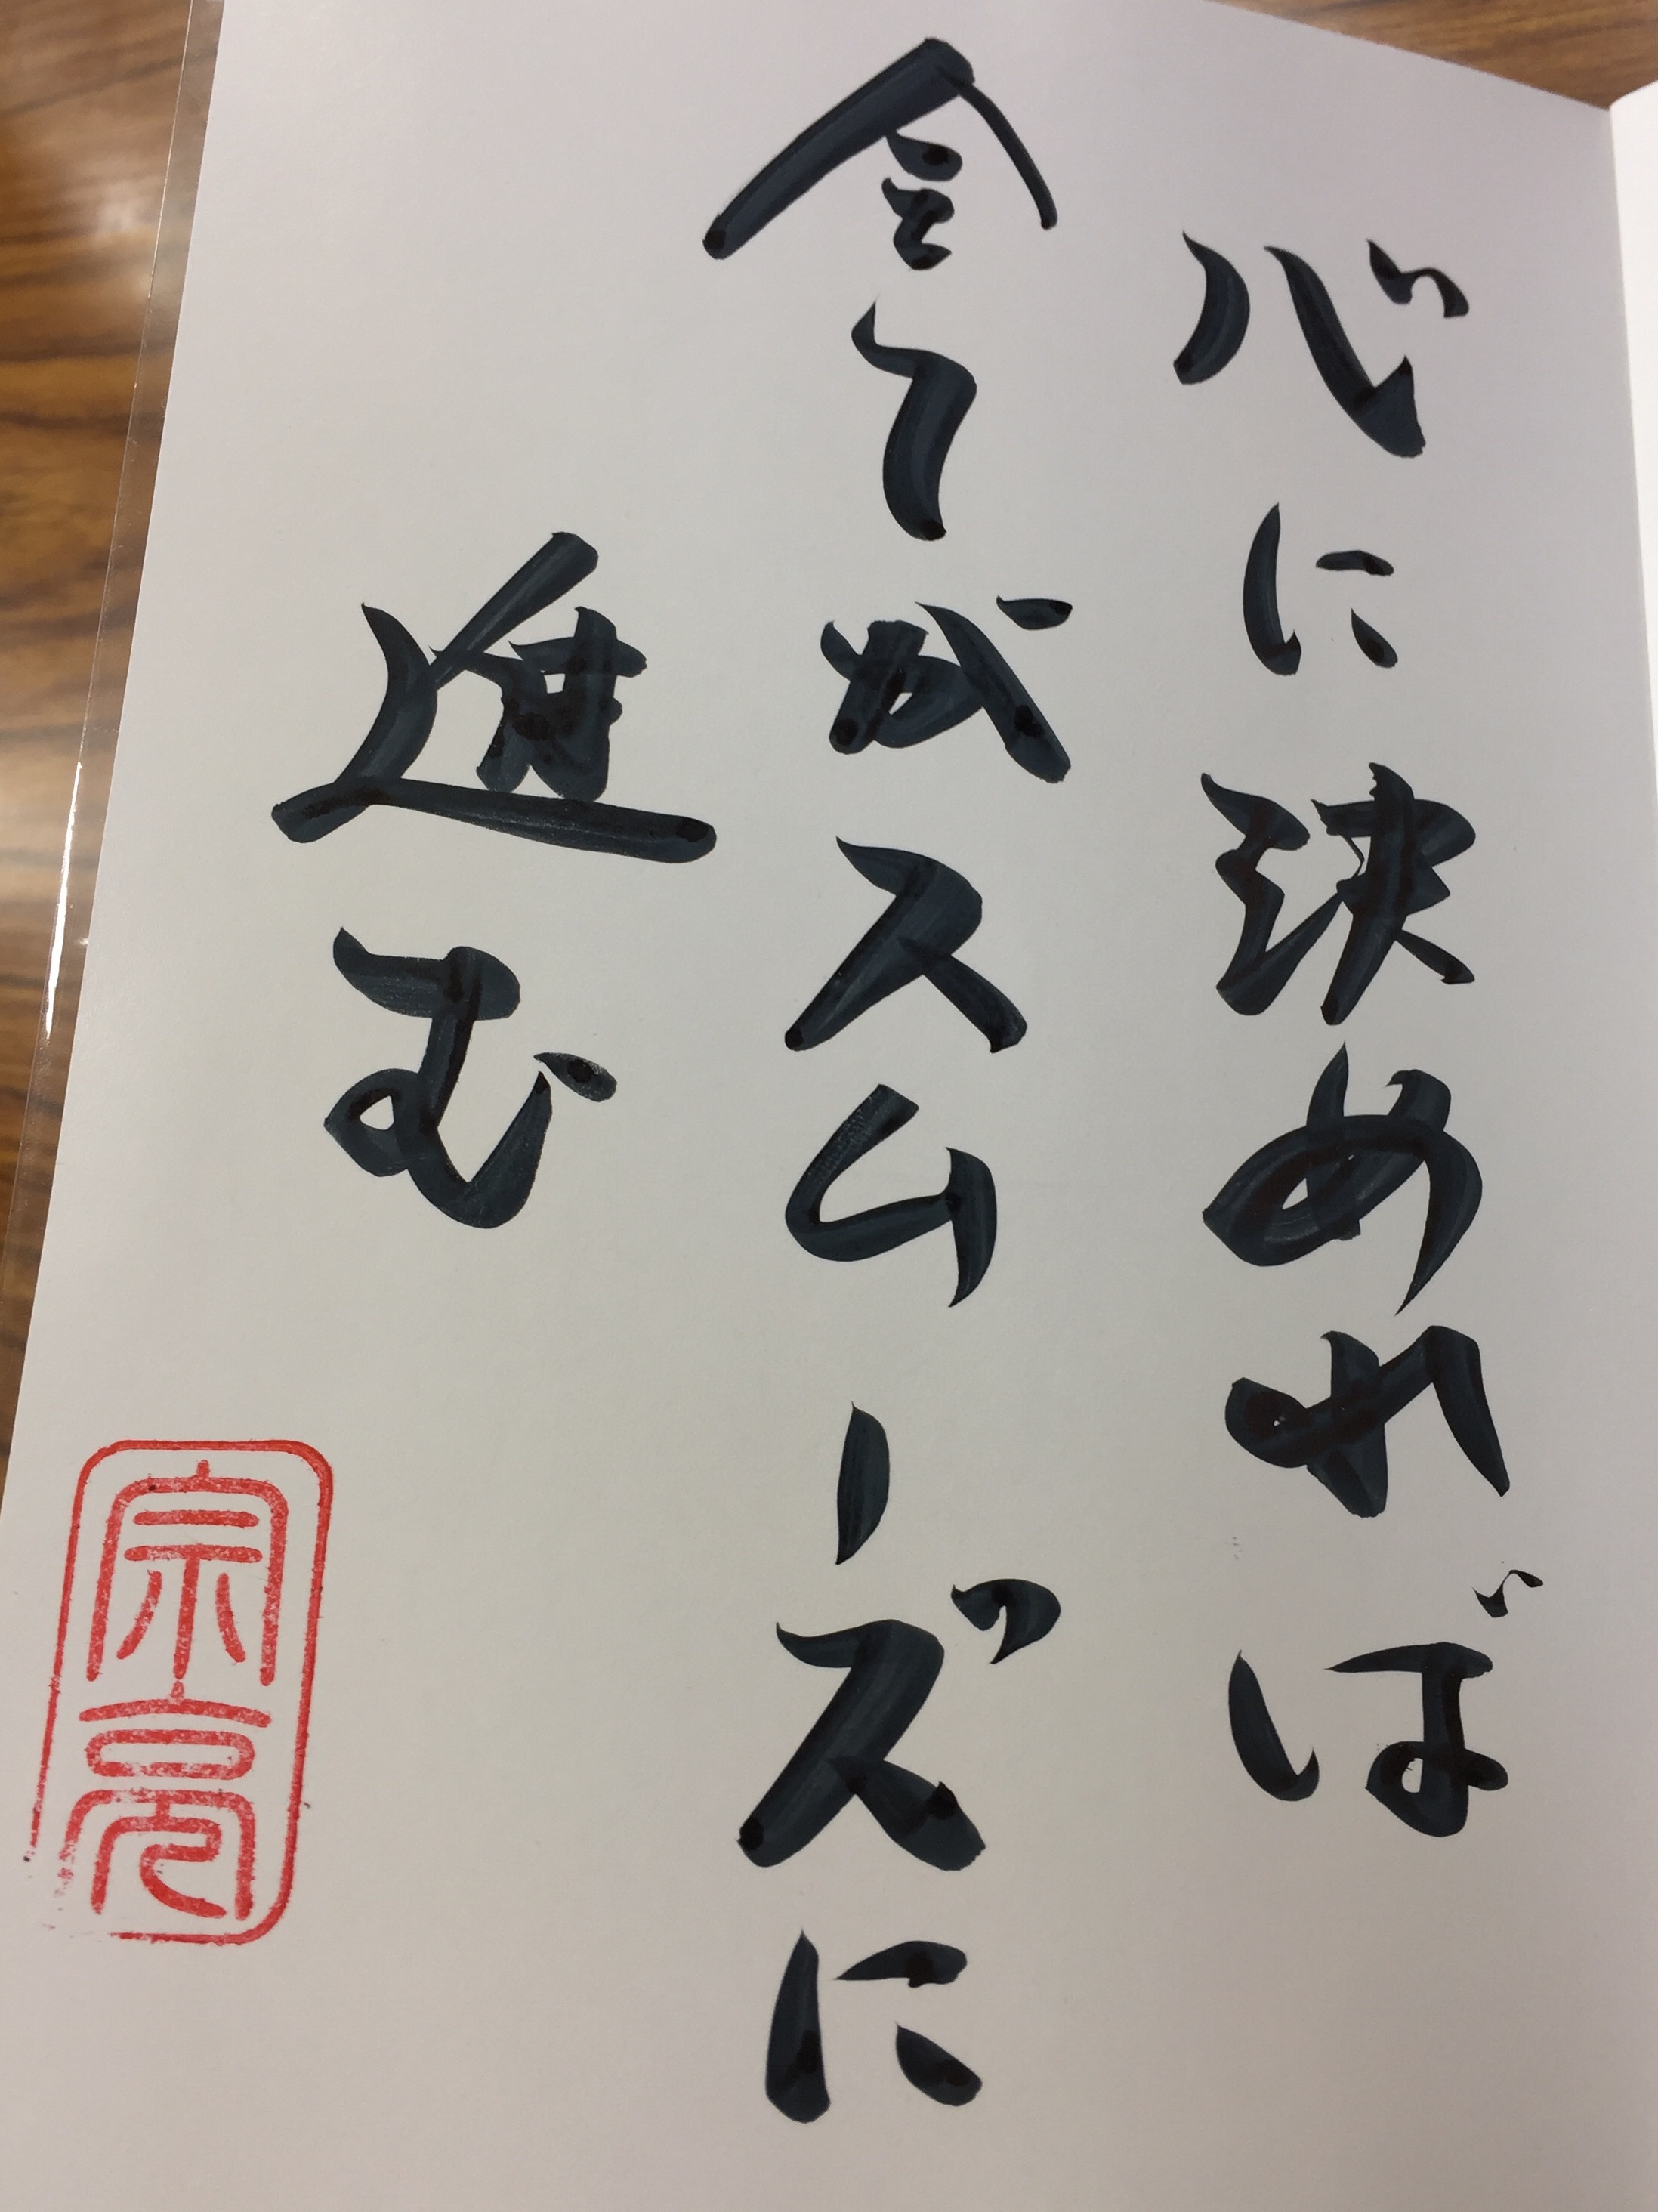 心に決めれば
全てがスムーズに
進む
宗亮